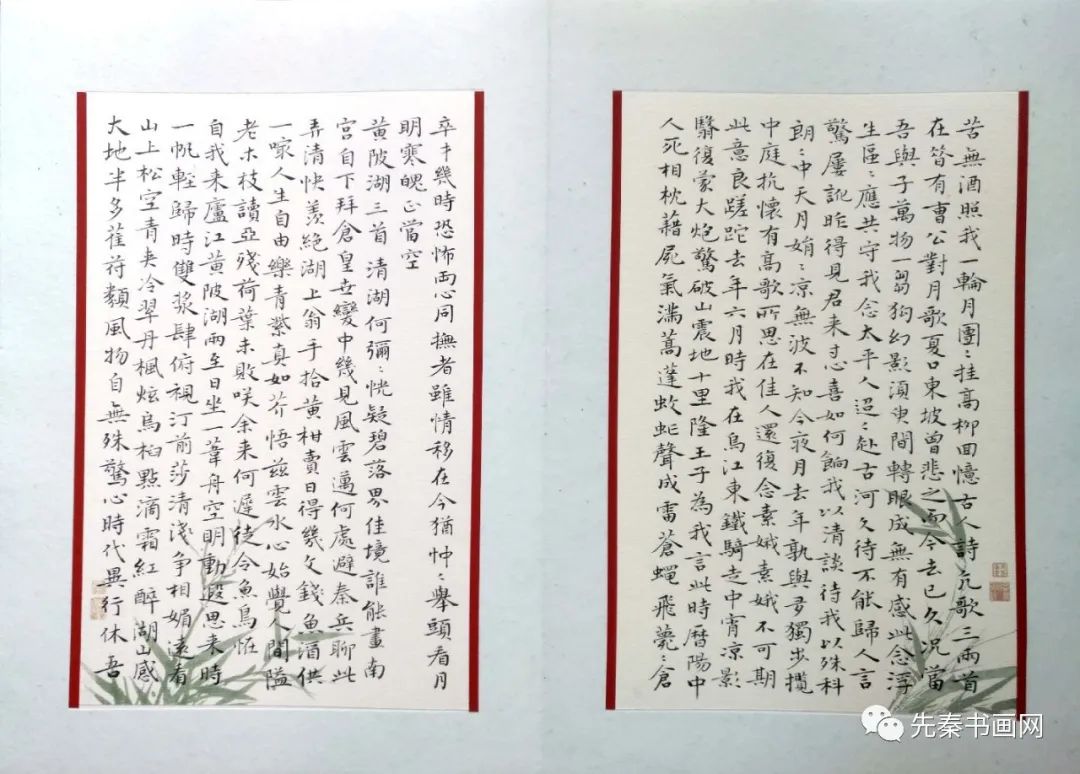 苦無酒照我一輪月團〻挂高柳回憶古人詩亢歌三兩首
在昔有曹公對月歌夏口東坡曾悲之而今去已久況當
吾與子萬物一芻狗幻影須臾間轉眼成無有感此念浮
生區〻應共守我念太平人迢〻赴古河久待不能歸人言
驚屢訛昨得見君来忐喜如何餉我以清談待我以殊科
朗〻中天月娟〻凉無波不知今夜月去年孰與多獨步攬
中庭抗懷有高歌所思在佳人還復念素娥素娥不可期
此意良蹉跎去年六月時我在烏江東鐵騎走中宵凉影
翳復蒙大炮驚破山震地十里隆王子為我言此時曆陽中
人死相枕藉屍氣滿蒿蓬蚊虻聲成雷蒼蠅飛薨〻倉
卒中幾時恐怖兩心同撫者雖情移在今猶忡〻舉頭看月
明寒魄正當空
黃陂湖三首 清湖何瀰〻恍疑碧落界佳境誰能畫南
宮自下拜倉皇世變中幾見風雲邁何處避秦兵聊此
弄清快羨絕湖上翁手拾黃柑賣日得幾文錢魚酒供
一啄人生自由樂青紫真如芥悟兹雲水心始覺人間隘
老木枝讀亞殘荷葉未敗咲余来何遲徒令魚鳥恠
自我来廬江黃陂湖兩至日坐一葦舟空明動遐思来時
一帆輕歸時雙槳肆俯視汀前莎清淺争相媚遠看
山上松空青夹冷翠丹楓炫烏桕點滴霜紅醉湖山感
大地半多萑苻類風物自無殊驚心時代異行休吾
先秦书画网